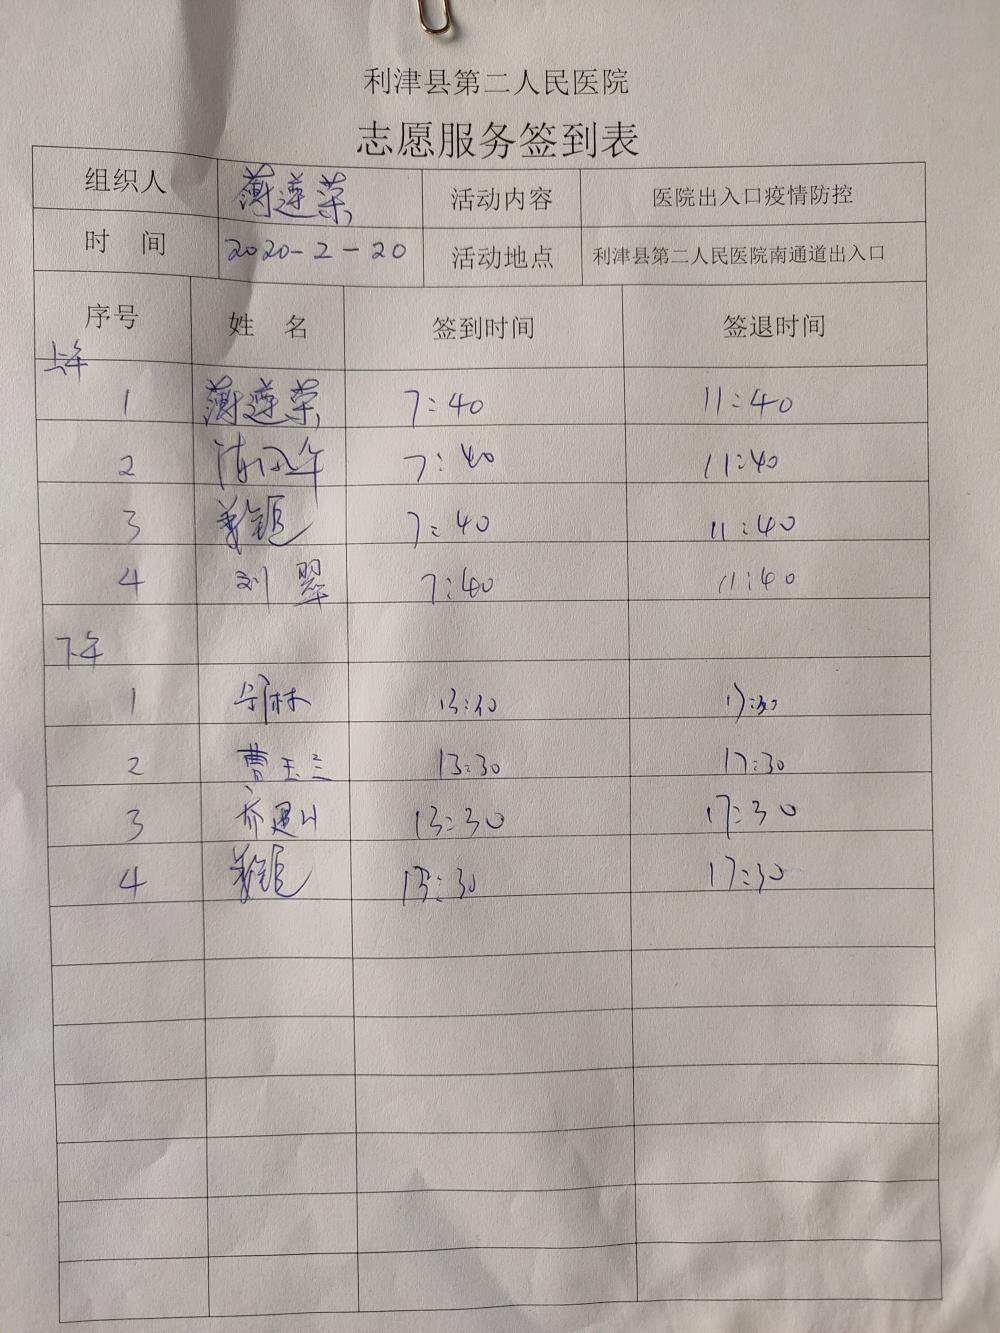 利津县第二人民医院
志愿服务签到表
组织人 薄莲荣 活动内容 医院出入口疫情防控
时 间 2020-2-20 活动地点 利津县第二人民医院南通道出入口
序号 姓 名 签到时间 签退时间
上午
1 薄莲荣 7:40 11:40
2 7:40 11:40
3 7:40 11:40
4 刘翠 7:40 11:40
下午
1 13:30 17:30
2 曹玉兰 13:30 17:30
3 13:30 17:30
4 13:30 17:30